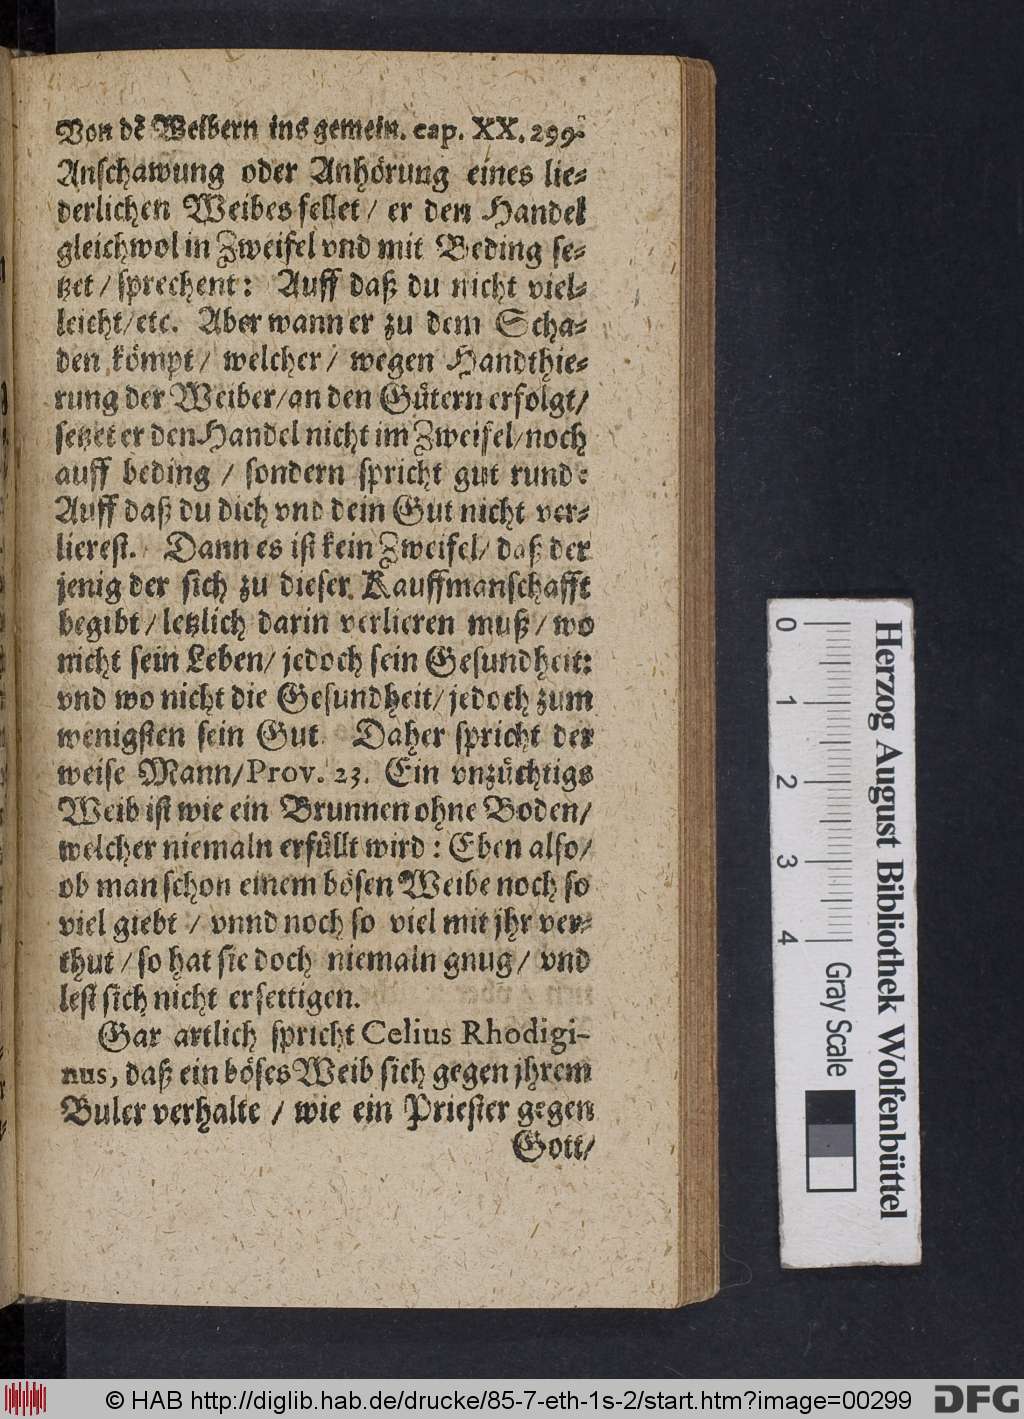 Von dẽ Weibern ins gemein. cap. XX. 299.
Anschawung oder Anhörung eines lie-
derlichen Weibes fellet / er den Handel
gleichwol in Zweifel vnd mit Beding se-
tzet / sprechent: Auff daß du nicht viel-
leicht / etc. Aber wann er zu dem Scha-
den kömpt / welcher / wegen Handthie-
rung der Weiber / an den Gütern erfolgt /
setzet er den Handel nicht im Zweifel / noch
auff beding / sondern spricht gut rund:
Auff daß du dich vnd dein Gut nicht ver-
lierest. Dann es ist kein Zweifel / daß der
jenig der sich zu dieser Kauffmanschafft
begibt / letzlich darin verlieren muß / wo
nicht sein Leben / jedoch sein Gesundheit:
vnd wo nicht die Gesundheit / jedoch zum
wenigsten sein Gut. Daher spricht der
weise Mann / Prov. 23. Ein vnzüchtigs
Weib ist wie ein Brunnen ohne Boden /
welcher niemaln erfüllt wird: Eben also /
ob man schon einem bösen Weibe noch so
viel giebt / vnnd noch so viel mit jhr ver-
thut / so hat sie doch niemaln gnug / vnd
lest sich nicht ersettigen.
Gar artlich spricht Celius Rhodigi-
nus, daß ein böses Weib sich gegen jhrem
Buler verhalte / wie ein Priester gegen
Gott /
0 1 2 3 4
Gray Scale
Herzog August Bibliothek Wolfenbüttel
© HAB http://diglib.hab.de/drucke/85-7-eth-1s-2/start.htm?image=00299
DFG